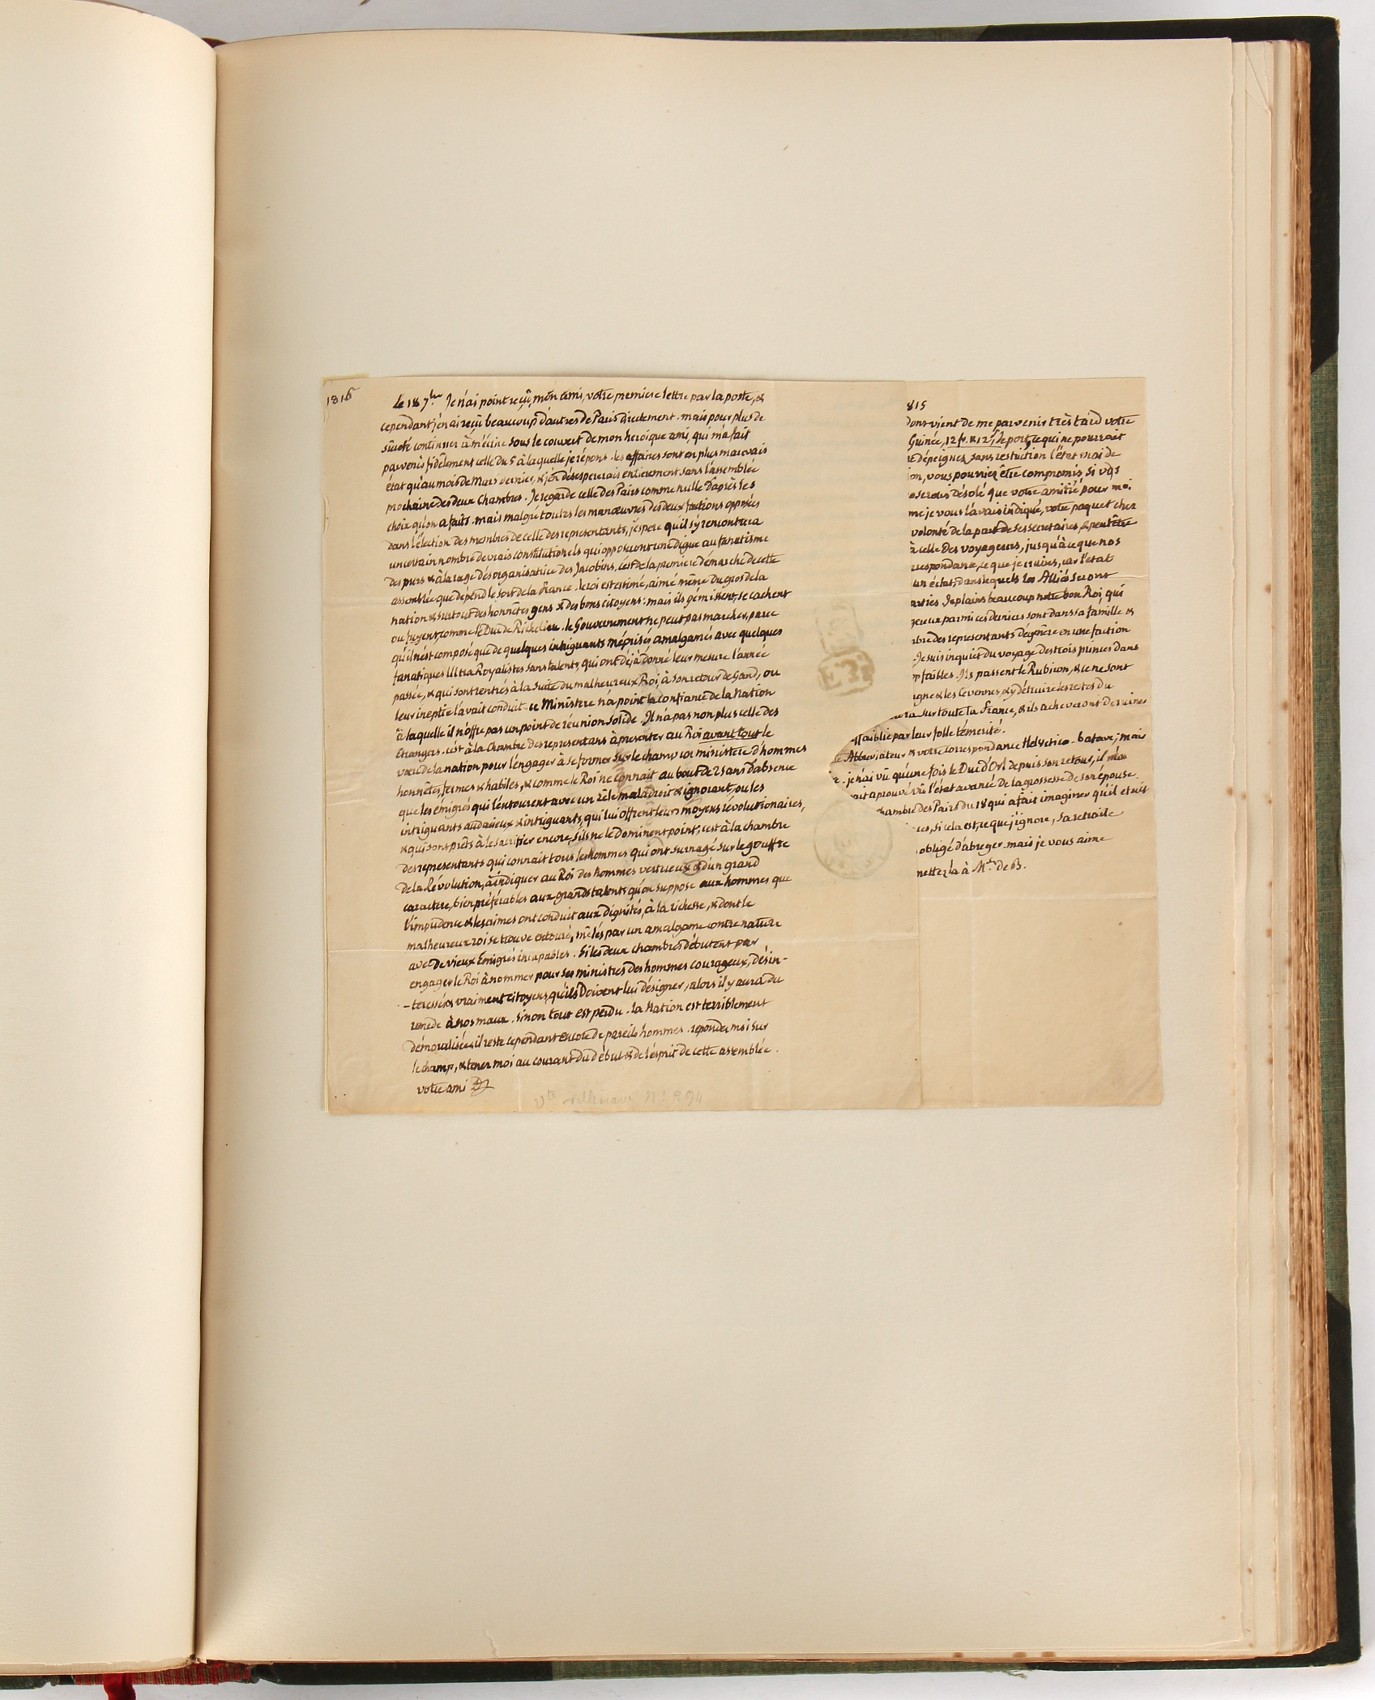 1815
Le 18 7bre Je n'ai point reçû, mon ami, votre premiere lettre par la poste, &
cependant j'en ai reçû beaucoup d'autres de Paris directement. mais pour plus de
sûreté continuer à m'écrire sous le couvert de mon heroique ami, qui m'a fait
parvenir fidèlement celle du 5 à laquelle je répons. les affaires sont en plus mauvais
état qu'au mois de Mars dernier, & j'en désespererais entierement sans l'assemblée
prochaine des deux Chambres. Je regarde celle des Pairs comme nulle d'après les
choix qu'on a faits. mais malgré toutes les manœuvres des deux factions opposées
dans l'élection des membres de celle des representants, j'espere qu'il s'y rencontrera
un certain nombre de vrais constitutionels qui opposeront une digue au fanatisme
des purs & à la rage désorganisatrice des Jacobins, c'est de la premiere démarche de cette
assemblée que dépend le sort de la france. le roi est estimé, aimé même du gros de la
nation & surtout des honnêtes gens & des bons citoyens: mais ils gémissent, se cachent
ou fuyent, comme le Duc de Richelieu. le Gouvernement ne peut pas marcher, parce
qu'il n'est composé que de quelques intriguants méprisés amalgamés avec quelques
fanatiques Ultra Royalistes sans talents, qui ont déjà donné leur mesure l'année
passée, & qui sont rentrés à la suite du malheureux Roi à son retour de Gand, ou
leur ineptie l'avait conduit. ce Ministere n'a point la confiance de la Nation
à laquelle il n'offre pas un point de réunion solide. Il n'a pas non plus celle des
Etrangers. c'est à la Chambre des representans à presenter au Roi avant tout le
vœu de la nation pour l'engager à se former sur le champ un ministere d'hommes
honnêtes, fermes & habiles, & comme le Roi ne connait au bout de 25 ans d'absence
que les émigrés qui l'entourent avec un zèle maladroit & ignorant, ou les
intriguants audacieux & intriguants, qui lui offrent leurs moyens révolutionaires,
& qui sont prêts à le sacrifier encore, s'ils ne le dominent point; c'est à la chambre
des representants qui connait tous les hommes qui ont surnagé sur le gouffre
de la Révolution, à indiquer au Roi des hommes vertueux & d'un grand
caractere, bien préférables aux grands talents qu'on suppose aux hommes que
l'impudence & les crimes ont conduit aux dignités, à la richesse, & dont le
malheureux roi se trouve entouré, mêlés par un amalgame contre nature
avec de vieux Emigrés incapables. Si les deux chambres débutent par
engager le Roi à nommer pour ses ministres des hommes courageux, désin-
-teressés & vraiment citoyens, qu'ils doivent lui désigner, alors il y aura du
remede à nos maux. sinon tout est perdu. la Nation est terriblement
démoralisée; il reste cependant encore de pareils hommes. répondez moi sur
le champ, & tenez moi au courant du début & de l'esprit de cette assemblée.
votre ami
815
vient de me parvenir très tard votre
Guinée, 12 fr. & 12 s de port, ce qui ne pourrait
dépeignez sans restriction l'état moi de
ion, vous pourriez être compromis si vos
serais désolé que votre amitié pour moi
me je vous l'avais indiqué, votre paquet chez
volonté de la part de ses secretaires, & peutêtre
à celle des voyageurs, jusqu'à ce que nos
respondance, ce que je crains, car l'état
un éclat, dans lequel les Alliés seront
arties. Je plains beaucoup notre bon Roi, qui
geux parmi ces derniers sont dans sa famille &
bre des representants dégénere en une faction
Je suis inquiet du voyage des trois princes dans
faibles. Ils passent le Rubicon, & ce ne sont
igne & les Cevennes & y détruire les restes du
ra sur toute la France, & ils acheveront de ruiner
affaiblie par leur folle témérité.
Abbreviateur & votre correspondance Helvetico-batave; mais
je n'ai vû qu'une fois le Duc d'Orl. depuis son retour, il m'a
ait aprouvé vû l'état avancé de la grossesse de son épouse.
chambre des Pairs du 18 qui a fait imaginer qu'il etait
ces, si cela est, ce que j'ignore, sa retraite
obligé d'abreger. mais je vous aime
mettez la à Mde de B.